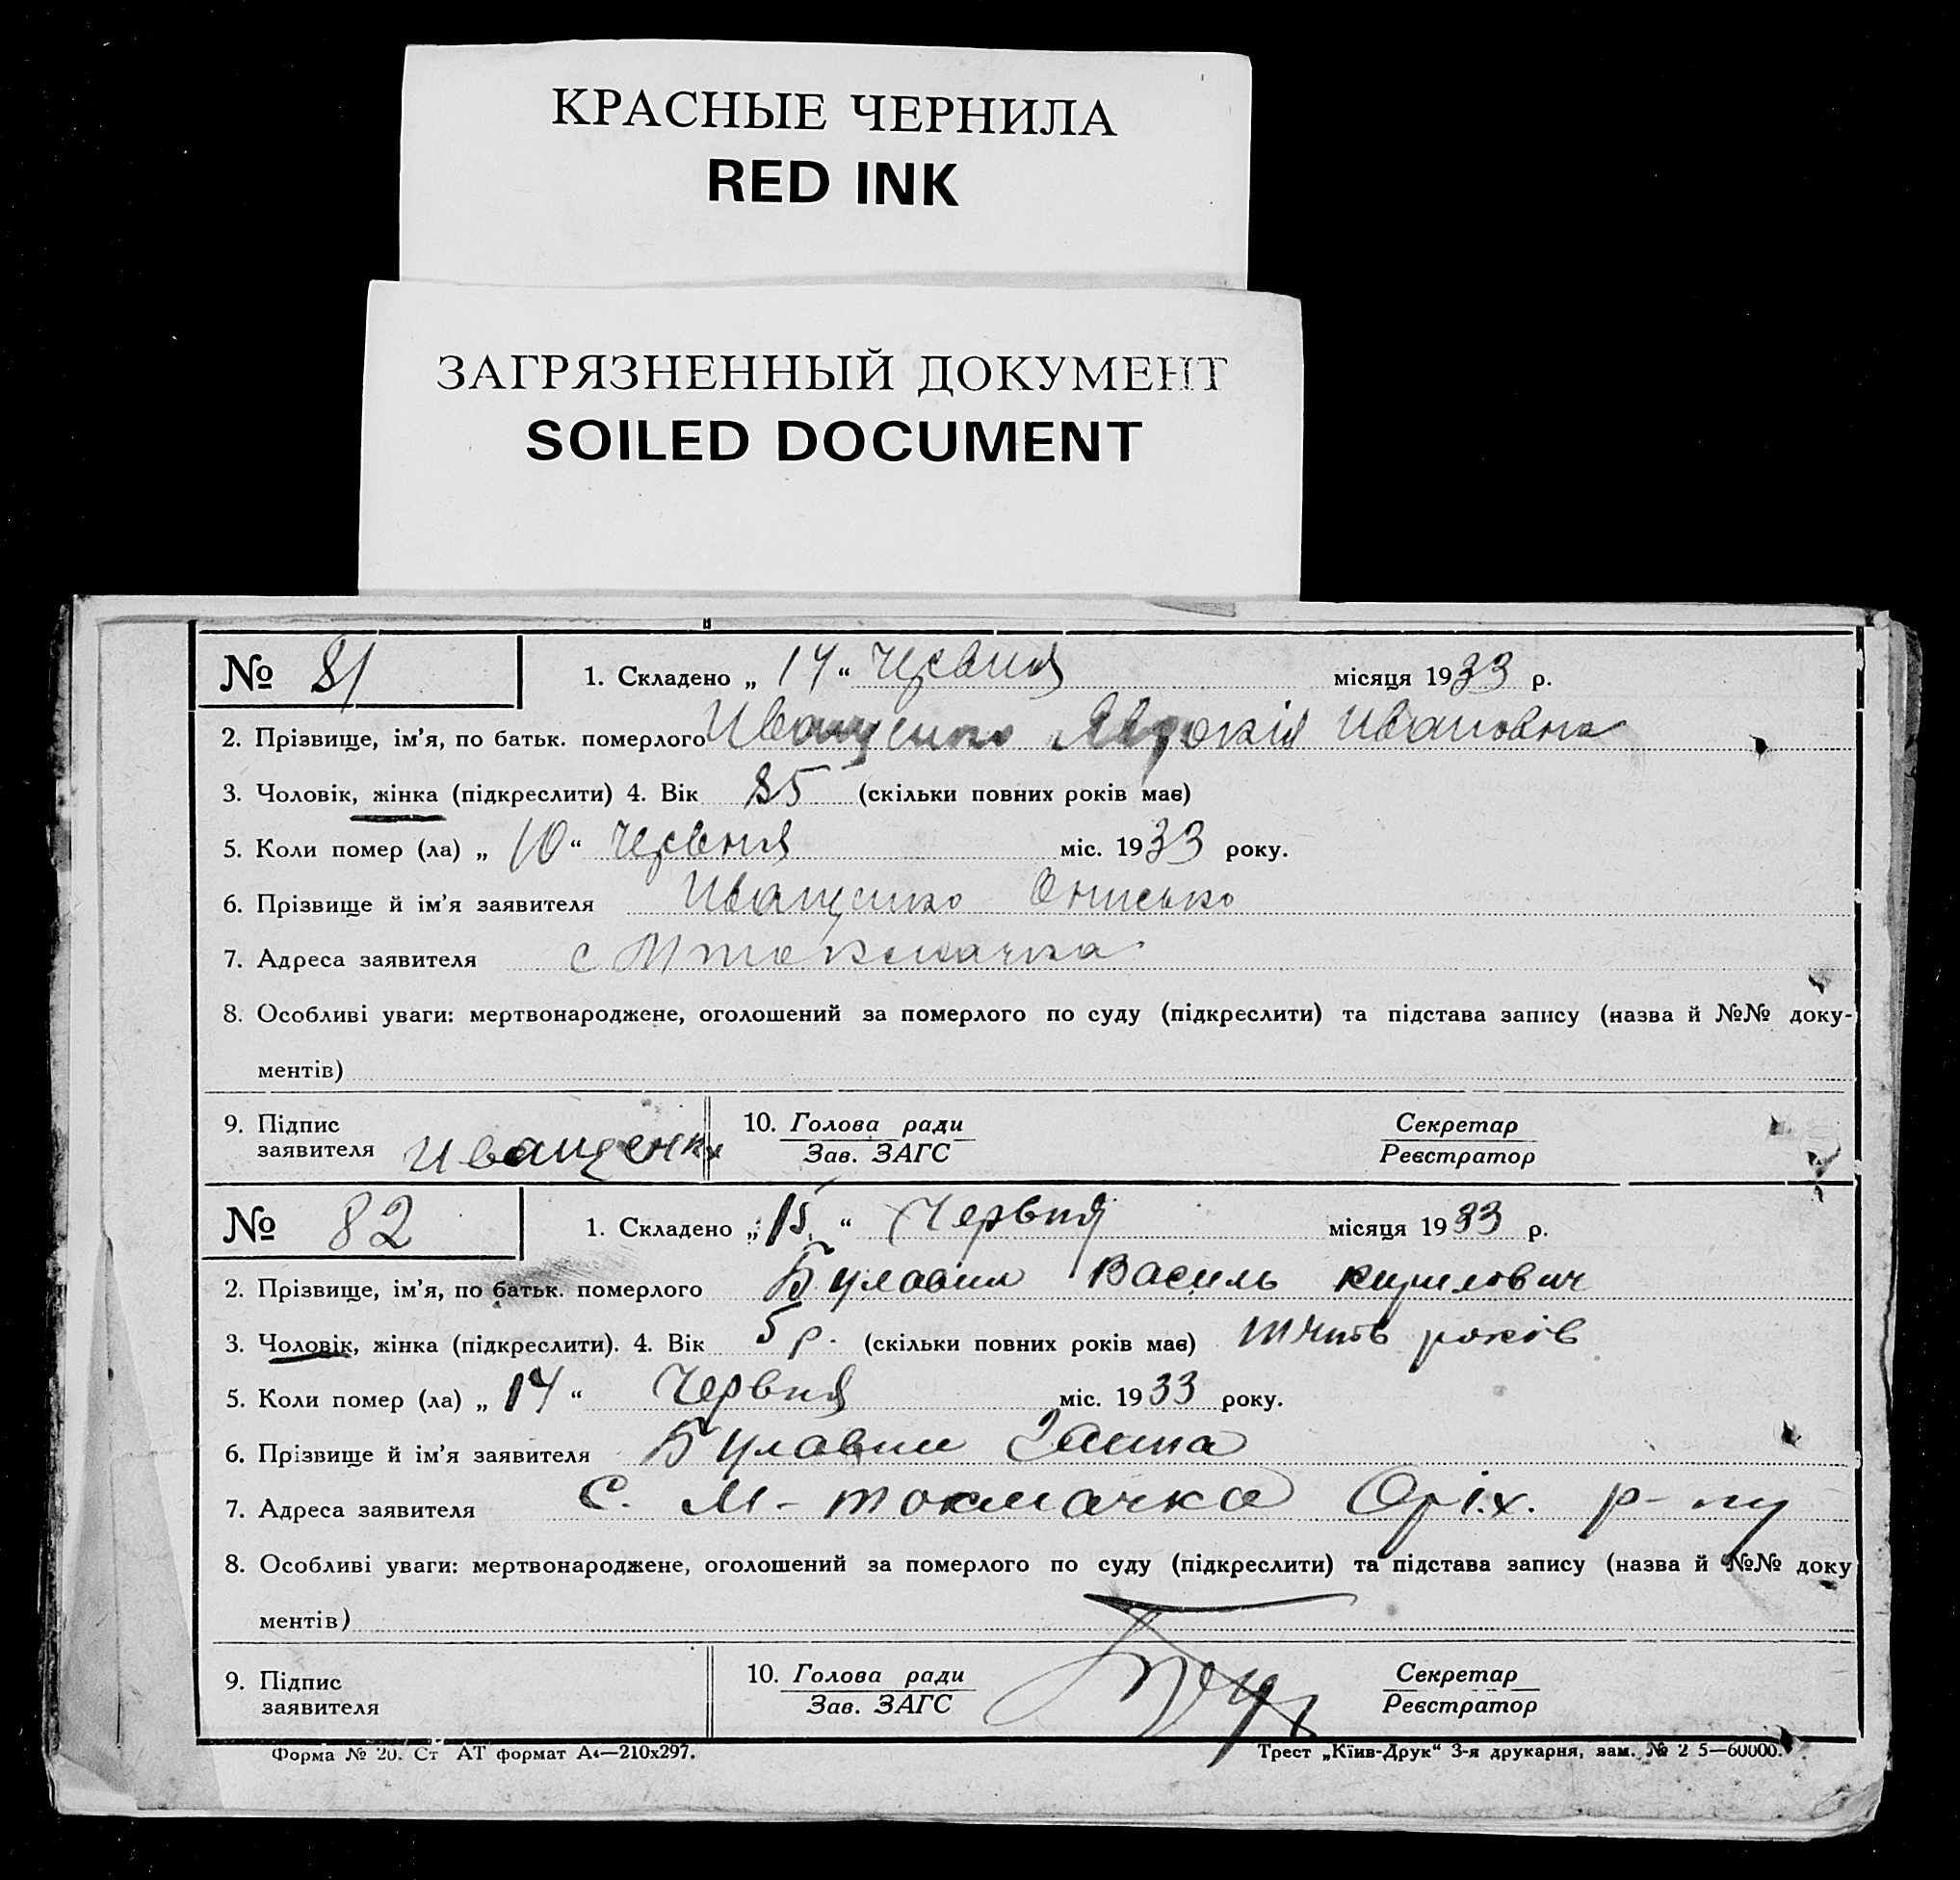 КРАСНЫЕ ЧЕРНИЛА
RED INK
ЗАГРЯЗНЕННЫЙ ДОКУМЕНТ
SOILED DOCUMENT
№ 81 1. Складено „ 14 “ Червня місяця 1933 р.
2. Прізвище, ім'я, по батьк. померлого Иващенко Явдокія Ивановна
3. Чоловік, жінка (підкреслити) 4. Вік 85 (скільки повних років має)
5. Коли помер (ла) „ 10 “ Червня міс. 1933 року.
6. Прізвище й ім'я заявителя Иващенко Онисько
7. Адреса заявителя с М токмачка
8. Особливі уваги: мертвонароджене, оголошений за померлого по суду (підкреслити) та підстава запису (назва й №№ доку-
ментів)
9. Підпис заявителя Иващенко 10. Голова ради Секретар
Зав. ЗАГС Реєстратор
№ 82 1. Складено „ 15 “ Червня місяця 1933 р.
2. Прізвище, ім'я, по батьк. померлого Булавин Василь Кирилович
3. Чоловік, жінка (підкреслити). 4. Вік 5 р. (скільки повних років має) років
5. Коли помер (ла) „ 14 “ Червня міс. 1933 року.
6. Прізвище й ім'я заявителя Булавин
7. Адреса заявителя С. М-токмачка Оріх. р-ну
8. Особливі уваги: мертвонароджене, оголошений за померлого по суду (підкреслити) та підстава запису (назва й №№ доку
ментів)
9. Підпис заявителя 10. Голова ради Секретар
Зав. ЗАГС Реєстратор
Форма № 20. Ст АТ формат А4—210х297. Трест „Київ-Друк“ 3-я друкарня, зам. № 2 5—60000.